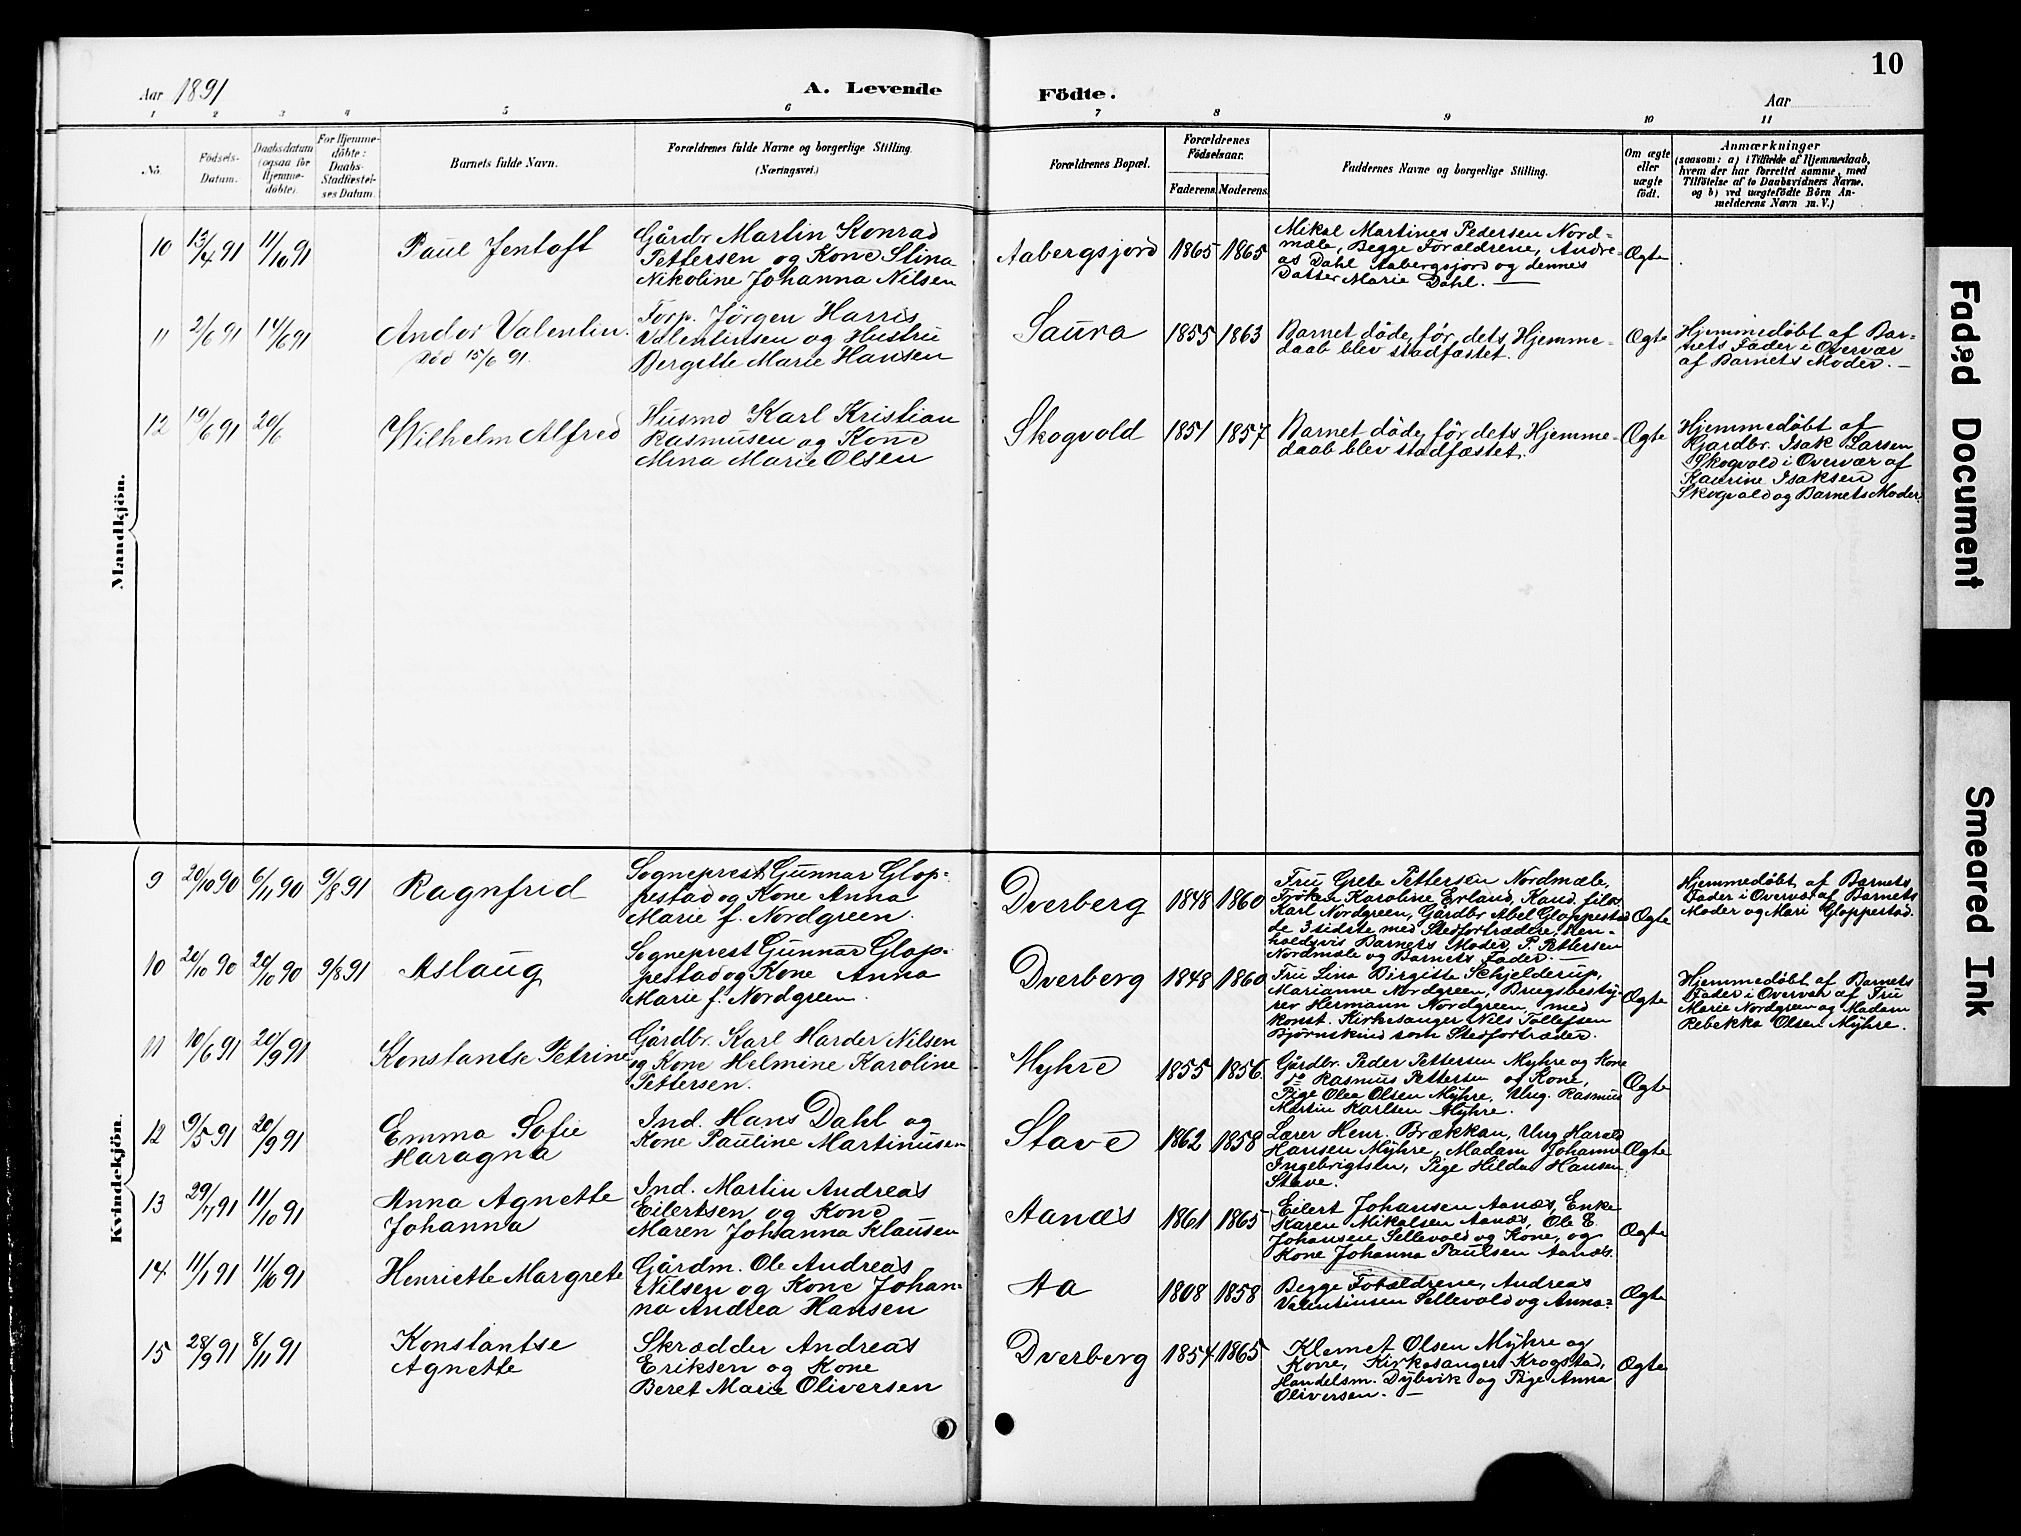 10
Aar 1891
A. Levende
Födte.
Aar
1 2 3 4 5 6 7 8 9 10 11
No.
Födsels-
Datum.
Daabsdatum
(ogsaa for
Hjemme-
döbte).
For Hjemme-
döbte:
Daabs-
Stadfæstel-
ses Datum.
Barnets fulde Navn.
Forældrenes fulde Navne og borgerlige Stilling.
(Næringsvei.)
Forældrenes Bopæl.
Forældrenes
Födselsaar.
Faderens. Moderens.
Faddernes Navne og borgerlige Stilling.
Om ægte
eller
uægte
födt.
Anmærkninger
(saasom: a) i Tilfælde af Hjemmedaab,
hvem der har forrettet samme, med
Tilföielse af to Daabsvidners Navne,
og b) ved uægtefödte Börn An-
melderens Navn m. V.)
Mandkjön.
10 13/4 91 11/10 91
Paul Jentoft
Gårdbr Martin Konrad
Pettersen og Kone Stina
Nikoline Johanna Nilsen
Aabergsjord
1865 1865
Mikal Martines Pedersen Nord-
mæle, Begge Forældrene, Andre-
as Dahl Aabergsjord og dennes
Datter Marie Dahl. —
Ægte
11 2/6 91 14/6 91
Andor Valentin.
død 15/6 91.
Forp. Jørgen Harris
Valentinsen og Hustru
Bergitte Marie Hansen
Saura
1855 1863
Barnet døde før dets Hjemme-
daab blev stadfæstet.
Ægte
Hjemmedøbt af Bar-
nets Fader i Overvær
af Barnets Moder. —
12 19/6 91 20/6
Wilhelm Alfred
Husmd Karl Kristian
Rasmusen og Kone
Mina Marie Olsen
Skogvold
1851 1857
Barnet døde før dets Hjemme-
daab blev stadfæstet.
Ægte
Hjemmedøbt af
Gjardbr. Isak Larsen
Skogvold i Overvær af
Kaurine Isaksen
Skogvold og Barnets Moder.
Kvindekjön.
9 20/10 90 6/11 90 9/8 91
Ragnfrid
Sogneprest Gunnar Glop-
pestad og Kone Anna
Marie f. Nordgreen.
Dverberg
1848 1860
Fru Grete Pettersen Nordmæle,
Frøken Karoline Erland, Kand. filos
Karl Nordgreen, Gårdbr Abel Gloppestad
de 3 sidste med Stedfortrædere, hen-
holdsvis Barnets Moder, P. Pettersen
Nordmæle og Barnets Fader. —
Ægte
Hjemmedøbt af Barnets
Fader i Overvær af Barnets
Moder og Mari Gloppestad.
10 20/10 90 20/10 90 9/8 91
Aslaug
Sogneprest Gunnar Glop-
pestad og Kone Anna
Marie f. Nordgreen.
Dverberg
1848 1860
Fru Lina Birgitte Schjelderup,
Marianne Nordgreen, Brugsbesty-
rer Hermann Nordgreen, med
konst. Kirkesanger Nils Tollefsen
Bjørnskind som Stedfortræder.
Ægte
Hjemmedøbt af Barnets
Fader i Overvær af Fru
Marie Nordgreen og Madam
Rebekka Olsen Myhre.
11 10/6 91 20/9 91
Konstantse Petrine
Gårdbr. Karl Harder Nilsen
og Kone Helmine Karoline
Pettersen.
Myhre
1855 1856
Gårdbr. Peder Pettersen Myhre og Kone
do Rasmus Pettersen og Kone,
Pige Olea Olsen Myhre, Ung. Rasmus
Martin Karlsen Myhre.
Ægte
12 9/5 91 20/9 91
Emma Sofie
Haragna
Ind. Hans Dahl og
Kone Pauline Martinusen
Stave
1862 1858
Lærer Henr. Brækkan, Ung Harald
Hansen Myhre, Madam Johanne
Ingebrigtsen, Pige Hilda Hansen
Stave.
Ægte
13 29/7 91 11/10 91
Anna Agnette
Johanna
Ind. Martin Andreas
Eilertsen og Kone
Maren Johanna Klausen
Aanæs
1861 1865
Eilert Johansen Aanæs, Enke
Karen Mikalsen Aanæs, Ole E.
Johansen Sellevold og Kone, og
Kone Johanna Paulsen Aanæs.
Ægte
14 11/1 91 11/10 91
Henriette Margrete
Gårdm. Ole Andreas
Nilsen og Kone Johan-
na Andrea Hansen
Aa
1808 1858
Begge Forældrene, Andreas
Valentinsen Sellevold og Anna-
Ægte
15 28/9 91 8/11 91
Konstantse
Agnette
Skrædder Andreas
Eriksen og Kone
Beret Marie Oliversen
Dverberg
1854 1865
Klemet Olsen Myhre og
Kone, Kirkesanger Krogstad,
Handelsm. Dybvik og Pige Anna
Oliversen. —
Ægte
Faded Document
Smeared Ink